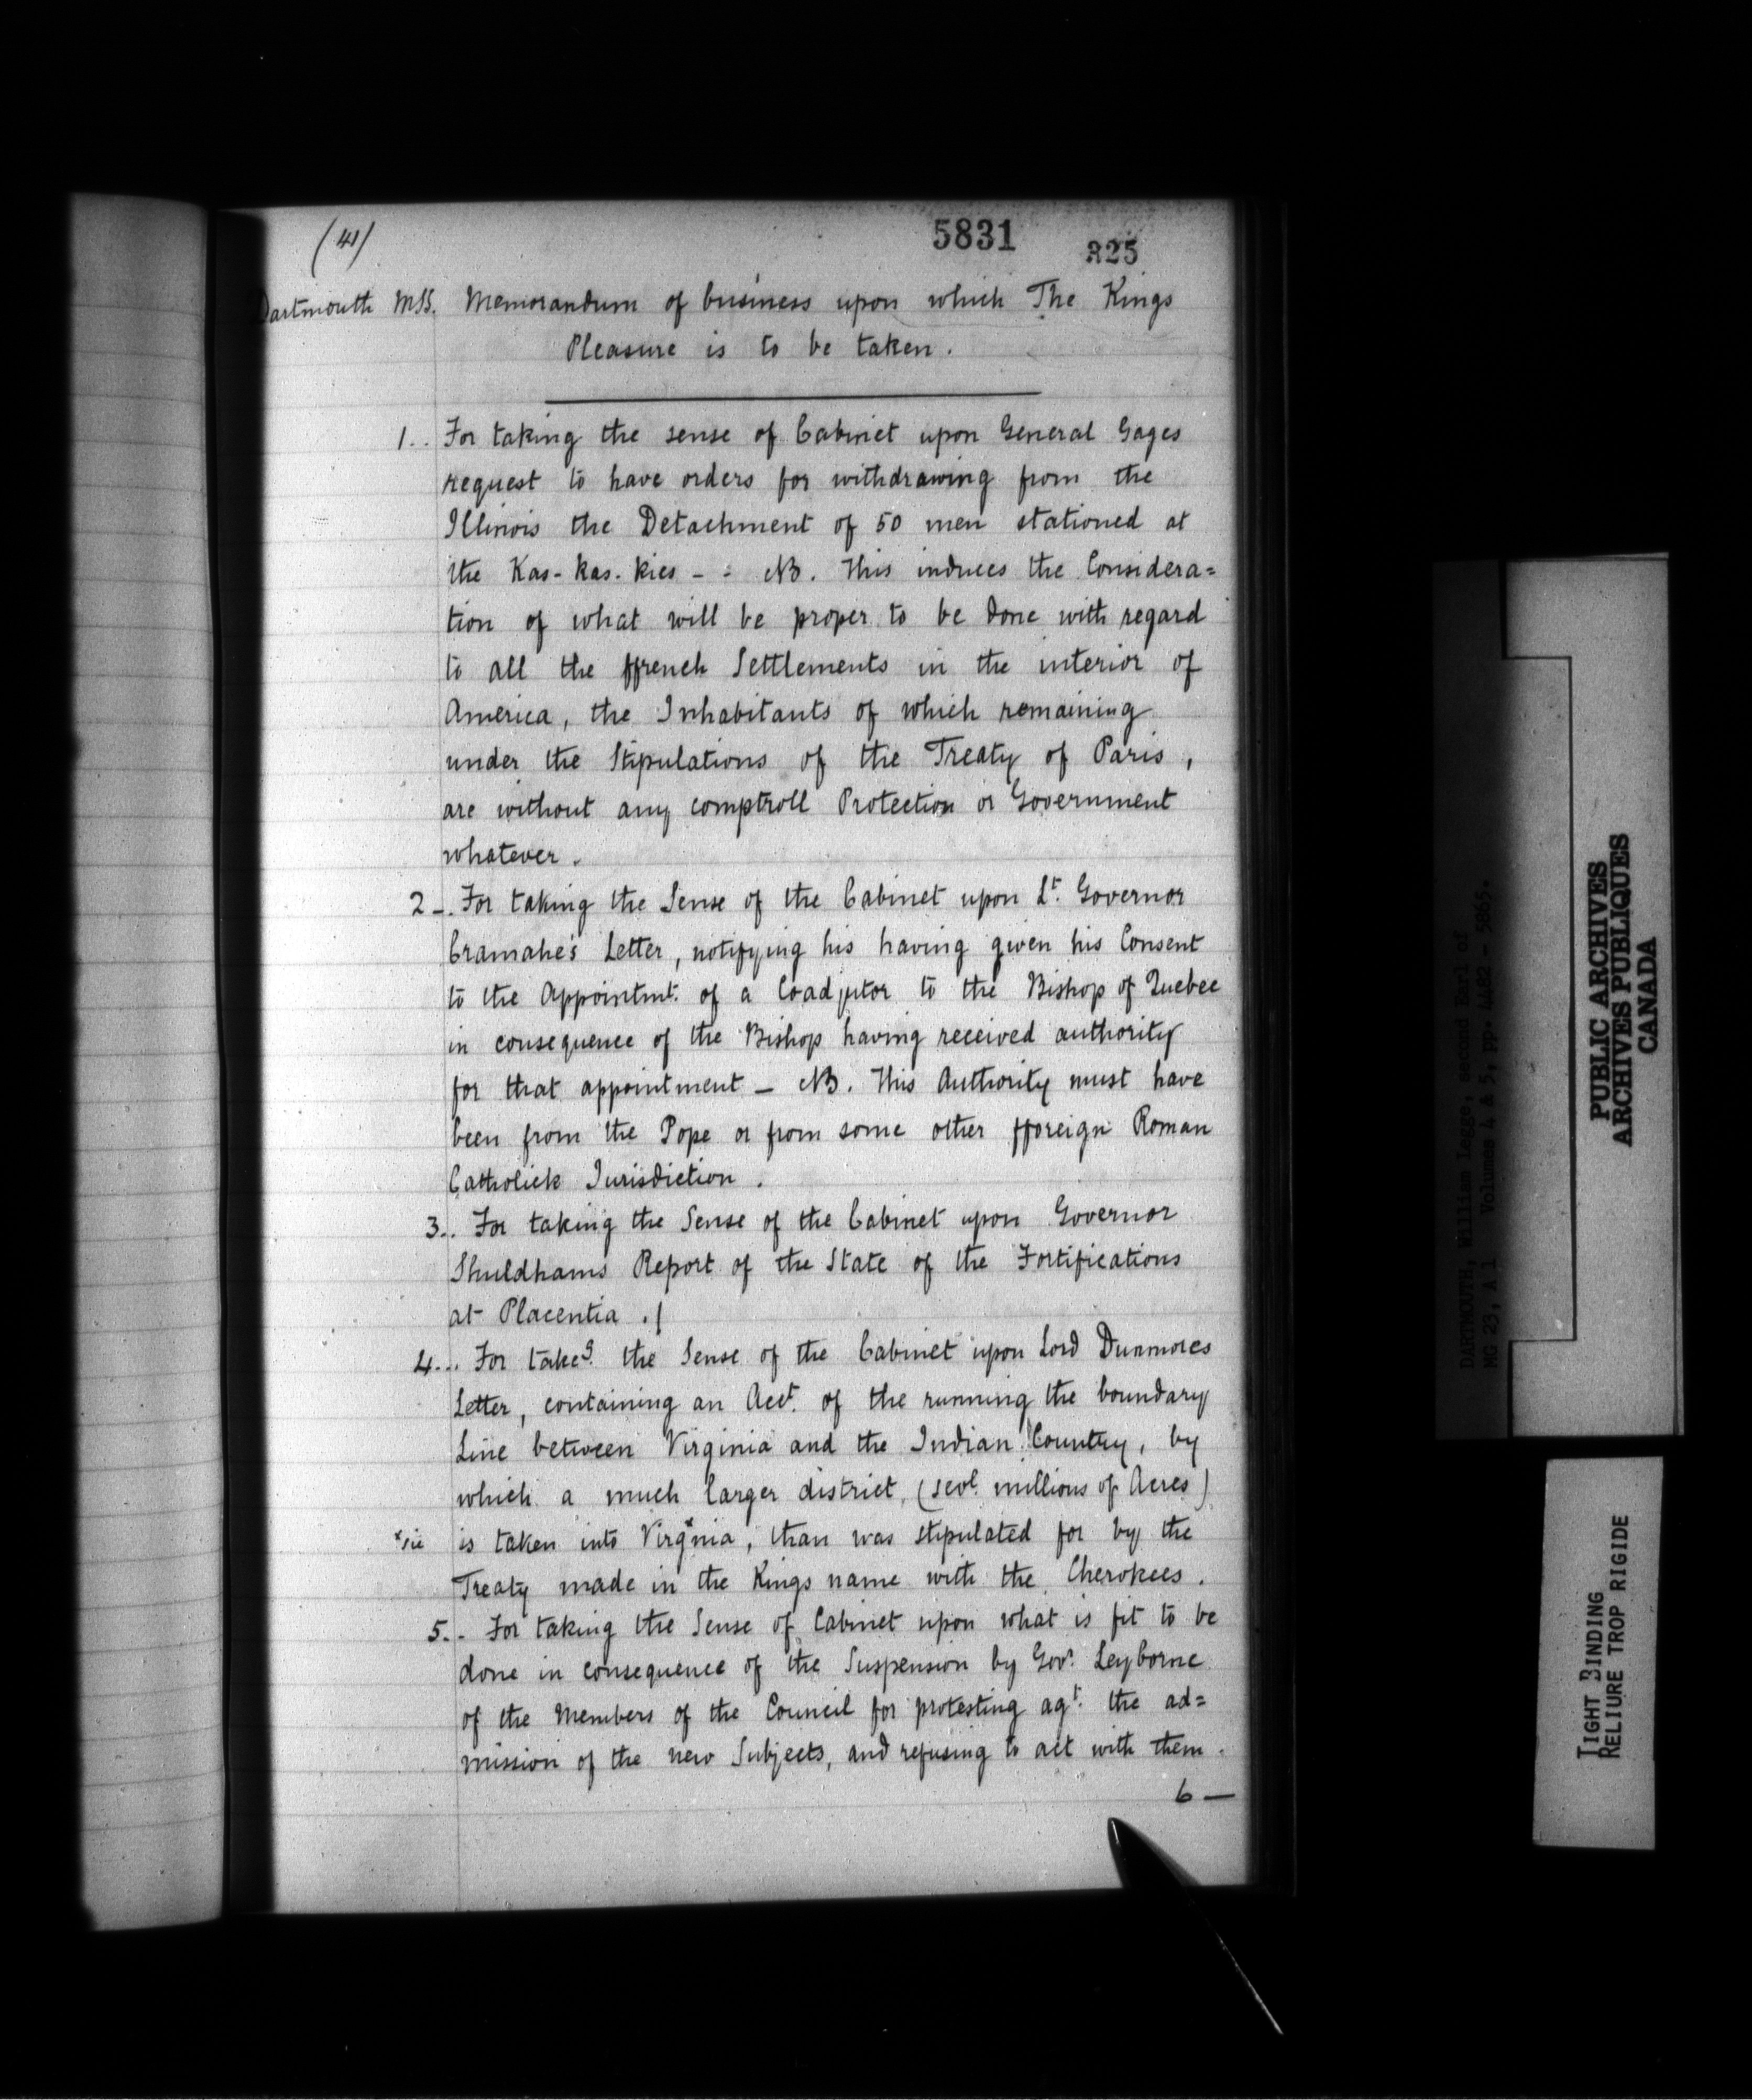 (41)
5831
325
Dartmouth MSS. Memorandum of business upon which The Kings
Pleasure is to be taken.
1.. For taking the sense of Cabinet upon General Gages
request to have orders for withdrawing from the
Illinois the Detachment of 50 men stationed at
the Kas-kas-kies - - NB. This induces the Considera=
tion of what will be proper to be done with regard
to all the ffrench Settlements in the interior of
America, the Inhabitants of which remaining
under the Stipulations of the Treaty of Paris,
are without any comptroll Protection or Government
whatever.
2-. For taking the Sense of the Cabinet upon Lt. Governor
Cramahe's Letter, notifying his having given his Consent
to the Appointmt. of a Coadjutor to the Bishop of Quebec
in consequence of the Bishop having received authority
for that appointment - NB. This Authority must have
been from the Pope or from some other fforeign Roman
Catholick Jurisdiction.
3.. For taking the Sense of the Cabinet upon Governor
Shuldhams Report of the State of the Fortifications
at Placentia ./
4... For takeg. the Sense of the Cabinet upon Lord Dunmores
Letter, containing an Acct. of the running the boundary
Line between Virginia and the Indian Country, by
which a much larger district, (sevl. millions of Acres)
*sic is taken into Virg*nia, than was stipulated for by the
Treaty made in the Kings name with the Cherokees.
5.- For taking the Sense of Cabinet upon what is fit to be
done in consequence of the Suspension by Govr. Leyborne
of the Members of the Council for protesting agt. the ad=
mission of the new Subjects, and refusing to act with them.
6 -
DARTMOUTH, William Legge, second Earl of
MG 23, A 1 Volumes 4 & 5, pp. 4482 - 5865.
PUBLIC ARCHIVES
ARCHIVES PUBLIQUES
CANADA
TIGHT BINDING
RELIURE TROP RIGIDE